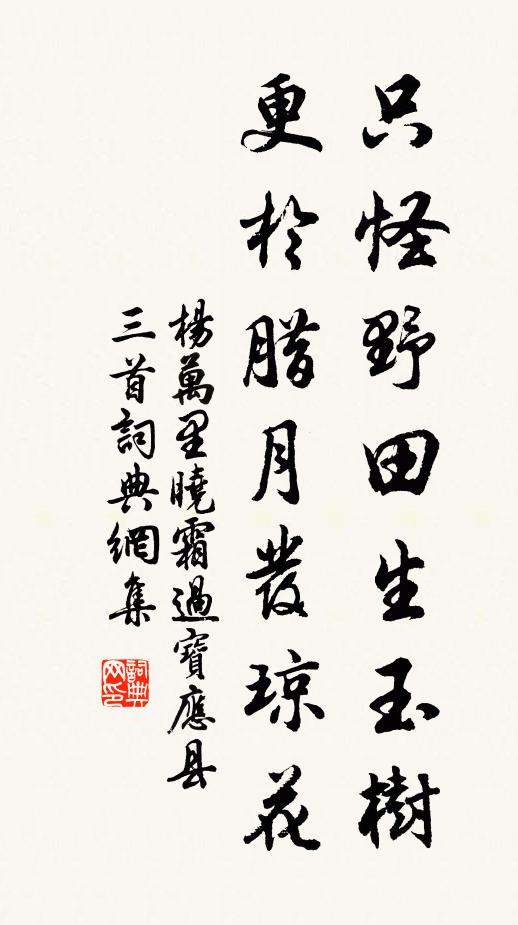 只怪野田生玉樹
更於腊月發琼花
楊萬里曉霜過寶應县
三首詞典網集
詞典网印